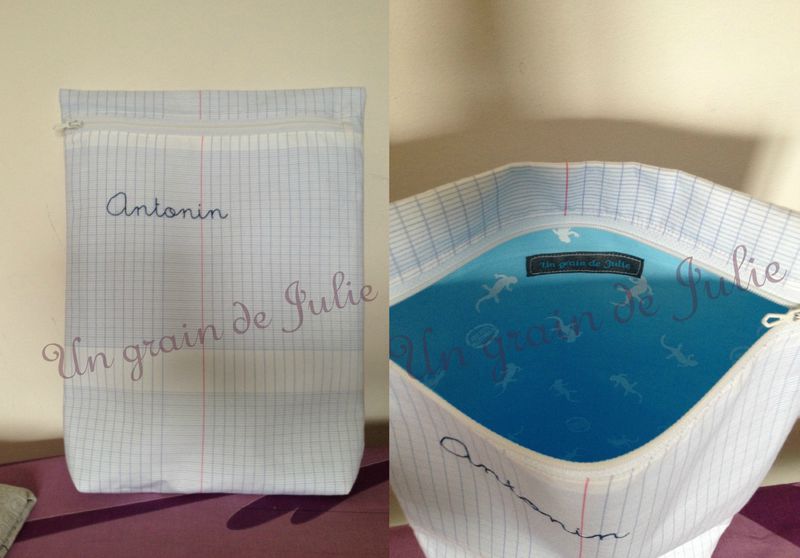 Antonin
Un grain de Julie
Un grain de Julie
Un grain de Julie
Antonin